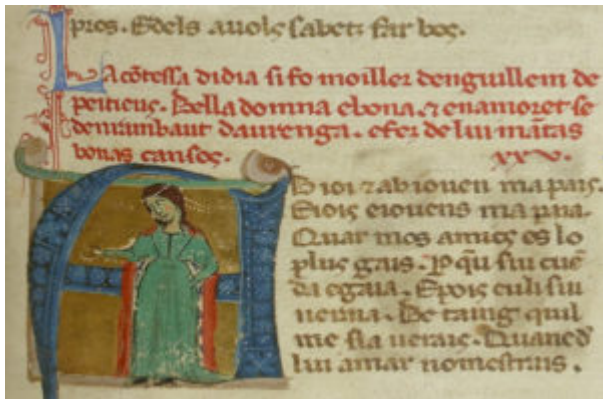 pros. Edels auols sabetz far bos.
La cõtessa didia si fo moiller denguillem de
peitieus. Bella domna ebona. ⁊ enamoret se
denrambaut daurenga. efez de lui mãtas
bonas cansos. xxv.
Ab ioi ⁊ab iouen ma pais.
Eiois eiouens ma paia.
Quar mos amics es lo
plus gais. Per qu siu cuẽ
da egaia. Epois eu li siu
ueraia. Be taing quil
me sia uerais. Quanc d
lui amar nomestrais.